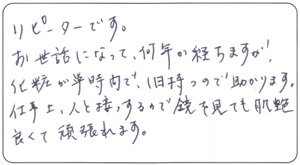 リピーターです。
お世話になって、何年か経ちますが、
化粧が短時間で、1日持つので助かります。
仕事上、人と接するので鏡を見ても肌艶
良くて頑張れます。